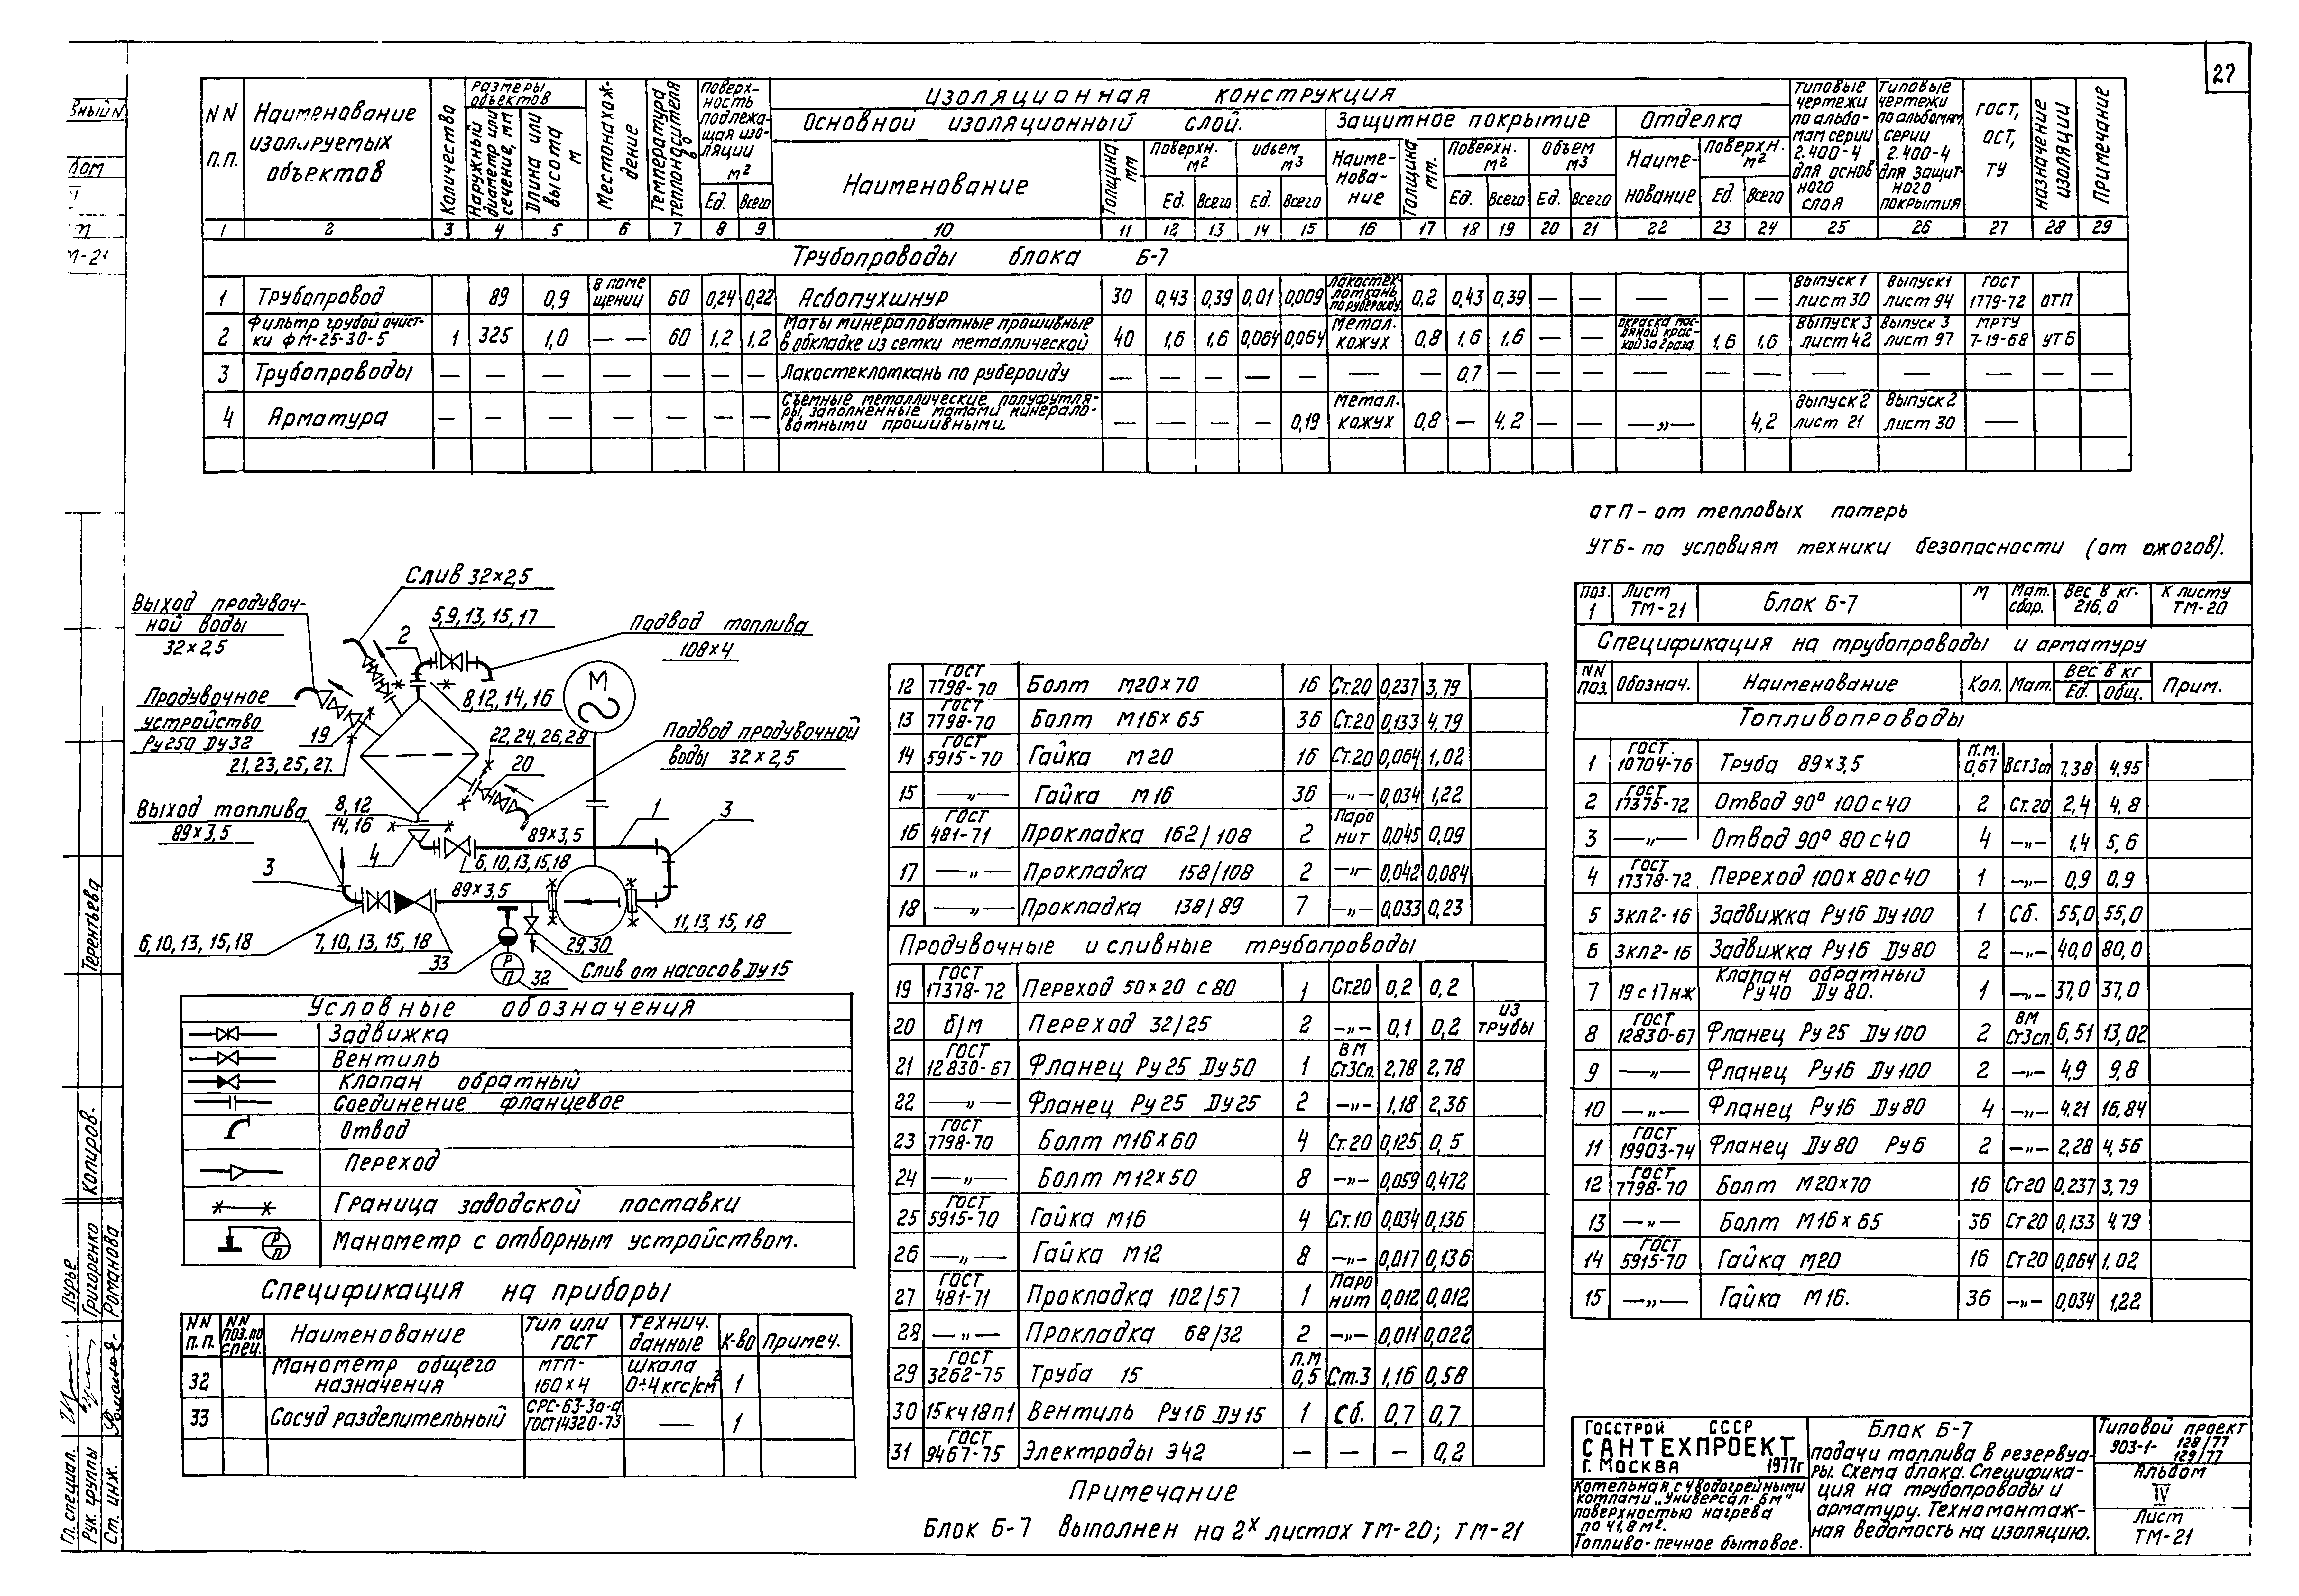 27
NN п.п.
Наименование изолируемых объектов
Количества
Размеры объектов
Наружный диаметр или сечение, мм
Длина или высота м
Местонахождение
Температура теплоносителя в °
Поверхность подлежащая изоляции м²
Ед. Всего
Изоляционная конструкция
Основной изоляционный слой.
Наименование
Толщина мм
Поверхн. м² Ед. Всего
Объем м³ Ед. Всего
Защитное покрытие
Наименование
Толщина мм.
Поверхн. м² Ед. Всего
Объем м³ Ед. Всего
Отделка
Наименование
Поверхн. м² Ед. Всего
Типовые чертежи по альбомам серии 2.400-4 для основного слоя
Типовые чертежи по альбомам серии 2.400-4 для защитного покрытия
ГОСТ, ОСТ, ТУ
Назначение изоляции
Примечание
1 2 3 4 5 6 7 8 9 10 11 12 13 14 15 16 17 18 19 20 21 22 23 24 25 26 27 28 29
Трубопроводы блока Б-7
1 Трубопровод 89 0,9 в помещении 60 0,24 0,22 Асбопухшнур 30 0,43 0,39 0,01 0,009 Лакостеклоткань по рубероиду 0,2 0,43 0,39 — — — — — Выпуск 1 лист 30 Выпуск 1 лист 94 ГОСТ 1779-72 ОТП
2 Фильтр грубой очистки ФМ-25-30-5 1 325 1,0 — — 60 1,2 1,2 Маты минераловатные прошивные в обкладке из сетки металлической 40 1,6 1,6 0,064 0,064 Метал. кожух 0,8 1,6 1,6 — — окраска масляной краской за 2 раза. 1,6 1,6 Выпуск 3 лист 42 Выпуск 3 лист 97 МРТУ 7-19-68 УТБ
3 Трубопроводы — — — — — — — Лакостеклоткань по рубероиду — — — — — — — 0,7 — — — — — — — — — — —
4 Арматура — — — — — — — Съемные металлические полуфутляры, заполненные матами минераловатными прошивными. — — — — 0,19 Метал. кожух 0,8 — 4,2 — — —„— 4,2 Выпуск 2 лист 21 Выпуск 2 лист 30 —
ОТП - от тепловых потерь
УТБ - по условиям техники безопасности (от ожогов).
Слив 32×2,5
Выход продувочной воды
32×2,5
2
5,9,13,15,17
Подвод топлива
108×4
8,12,14,16
М
Продувочное устройство Ру250 Ду32
19
21, 23, 25, 27.
22, 24, 26, 28
20
Подвод продувочной воды 32×2,5
Выход топлива
89×3,5
8,12
14,16
4
89×3,5
1
3
3
6,10,13,15,18
89×3,5
6,10,13,15,18
7,10,13,15,18
33
Р
П
32
29,30
11,13,15,18
Слив от насосов Ду15
Условные обозначения
Задвижка
Вентиль
Клапан обратный
Соединение фланцевое
Отвод
Переход
Граница заводской поставки
Р
П
Манометр с отборным устройством.
Спецификация на приборы
NN п.п. NN поз. по спец. Наименование Тип или ГОСТ Технич. данные К-во Примеч.
32 Манометр общего назначения МТП-160×4 Шкала 0÷4 кгс/см² 1
33 Сосуд разделительный СРС-63-3а-а ГОСТ14320-73 — 1
12 ГОСТ 7798-70 Болт М20×70 16 Ст.20 0,237 3,79
13 ГОСТ 7798-70 Болт М16×65 36 Ст.20 0,133 4,79
14 ГОСТ 5915-70 Гайка М20 16 Ст.20 0,064 1,02
15 —„— Гайка М16 36 —„— 0,034 1,22
16 ГОСТ 481-71 Прокладка 162/108 2 Паронит 0,045 0,09
17 —„— Прокладка 158/108 2 —„— 0,042 0,084
18 —„— Прокладка 138/89 7 —„— 0,033 0,23
Продувочные и сливные трубопроводы
19 ГОСТ 17378-72 Переход 50×20 с80 1 Ст.20 0,2 0,2
20 б/м Переход 32/25 2 —„— 0,1 0,2 из трубы
21 ГОСТ 12830-67 Фланец Ру25 Ду50 1 ВМ Ст3сп. 2,78 2,78
22 —„— Фланец Ру25 Ду25 2 —„— 1,18 2,36
23 ГОСТ 7798-70 Болт М16×60 4 Ст.20 0,125 0,5
24 —„— Болт М12×50 8 —„— 0,059 0,472
25 ГОСТ 5915-70 Гайка М16 4 Ст.10 0,034 0,136
26 —„— Гайка М12 8 —„— 0,017 0,136
27 ГОСТ 481-71 Прокладка 102/57 1 Паронит 0,012 0,012
28 —„— Прокладка 68/32 2 —„— 0,011 0,022
29 ГОСТ 3262-75 Труба 15 п.м 0,5 Ст.3 1,16 0,58
30 15кч18п1 Вентиль Ру16 Ду15 1 Сб. 0,7 0,7
31 ГОСТ 9467-75 Электроды Э42 — — — 0,2
Примечание
Блок Б-7 выполнен на 2х листах ТМ-20; ТМ-21
Поз. 1 Лист ТМ-21 Блок Б-7 М Мат. сбор. Вес в кг. 216,0 К листу ТМ-20
Спецификация на трубопроводы и арматуру
NN поз. Обознач. Наименование Кол. Мат. Вес в кг Ед. Общ. Прим.
Топливопроводы
1 ГОСТ 10704-76 Труба 89×3,5 п.м. 0,67 Вст3сп 7,38 4,95
2 ГОСТ 17375-72 Отвод 90° 100с40 2 Ст.20 2,4 4,8
3 —„— Отвод 90° 80с40 4 —„— 1,4 5,6
4 ГОСТ 17378-72 Переход 100×80с40 1 —„— 0,9 0,9
5 3кл2-16 Задвижка Ру16 Ду100 1 Сб. 55,0 55,0
6 3кл2-16 Задвижка Ру16 Ду80 2 —„— 40,0 80,0
7 19с17нж Клапан обратный Ру40 Ду80. 1 —„— 37,0 37,0
8 ГОСТ 12830-67 Фланец Ру25 Ду100 2 ВМ Ст3сп. 6,51 13,02
9 —„— Фланец Ру16 Ду100 2 —„— 4,9 9,8
10 —„— Фланец Ру16 Ду80 4 —„— 4,21 16,84
11 ГОСТ 19903-74 Фланец Ду80 Ру6 2 —„— 2,28 4,56
12 ГОСТ 7798-70 Болт М20×70 16 Ст20 0,237 3,79
13 —„— Болт М16×65 36 Ст20 0,133 4,79
14 ГОСТ 5915-70 Гайка М20 16 Ст20 0,064 1,02
15 —„— Гайка М16. 36 —„— 0,034 1,22
Госстрой СССР
САНТЕХПРОЕКТ
г. Москва 1977г
Котельная с 4 водогрейными
котлами „Универсал-6м"
поверхностью нагрева
по 41,8 м².
Топливо-печное бытовое.
Блок Б-7
подачи топлива в резервуа-
ры. Схема блока. Специфика-
ция на трубопроводы и
арматуру. Техномонтаж-
ная ведомость на изоляцию.
Типовой проект
903-1- 128/77
129/77
Альбом
IV
Лист
ТМ-21
Гл. специал. Лурье
Рук. группы Григоренко
Ст. инж. Романова
Копиров. Терентьева